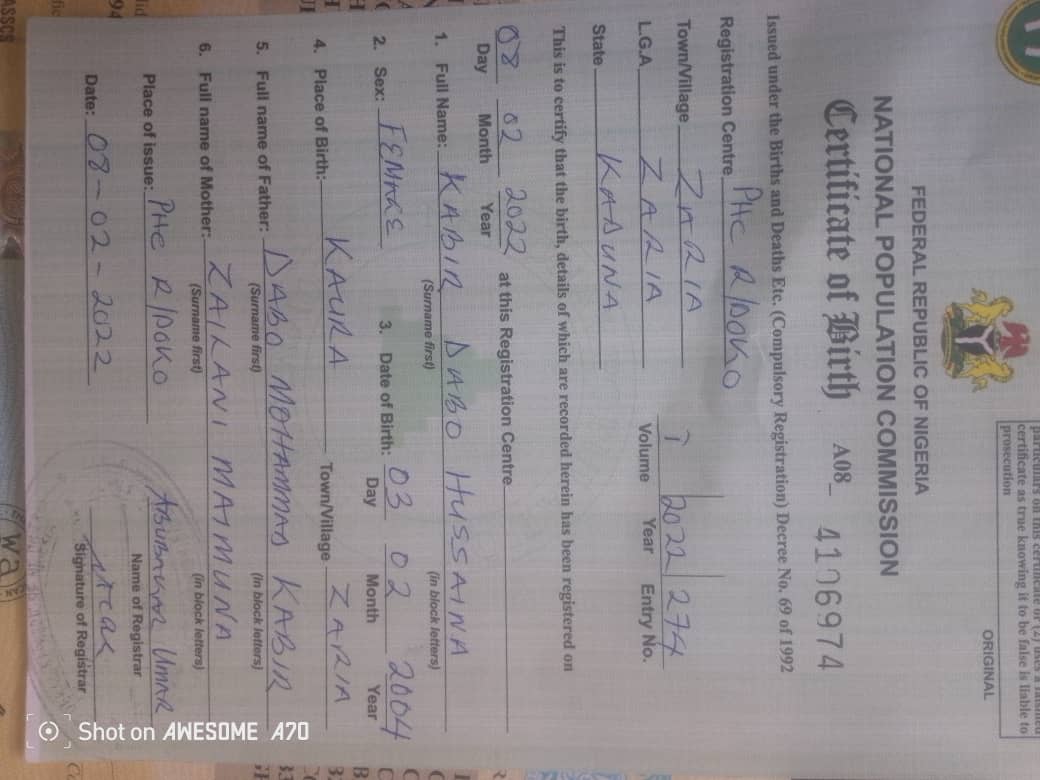 particulars on this certificate or (2) uses a falsified
certificate as true knowing it to be false is liable to
prosecution
ORIGINAL
FEDERAL REPUBLIC OF NIGERIA
NATIONAL POPULATION COMMISSION
Certificate of Birth A08 4106974
Issued under the Births and Deaths Etc. (Compulsory Registration) Decree No. 69 of 1992
Registration Centre PHC R/DOKO
Town/Village ZARIA
1 2022 274
L.G.A ZARIA Volume Year Entry No.
State KADUNA
This is to certify that the birth, details of which are recorded herein has been registered on
08 02 2022 at this Registration Centre
Day Month Year
1. Full Name: KABIR DABO HUSSAINA
(Surname first) (in block letters)
2. Sex: FEMALE 3. Date of Birth: 03 02 2004
Day Month Year
4. Place of Birth: KAURA Town/Village ZARIA
5. Full name of Father: DABO MOHAMMAD KABIR
(Surname first) (in block letters)
6. Full name of Mother: ZAILANI MAIMUNA
(Surname first) (in block letters)
Place of issue: PHC R/DOKO ABUBAKAR UMAR
Name of Registrar
Date: 08-02-2022
Signature of Registrar
Shot on AWESOME A70